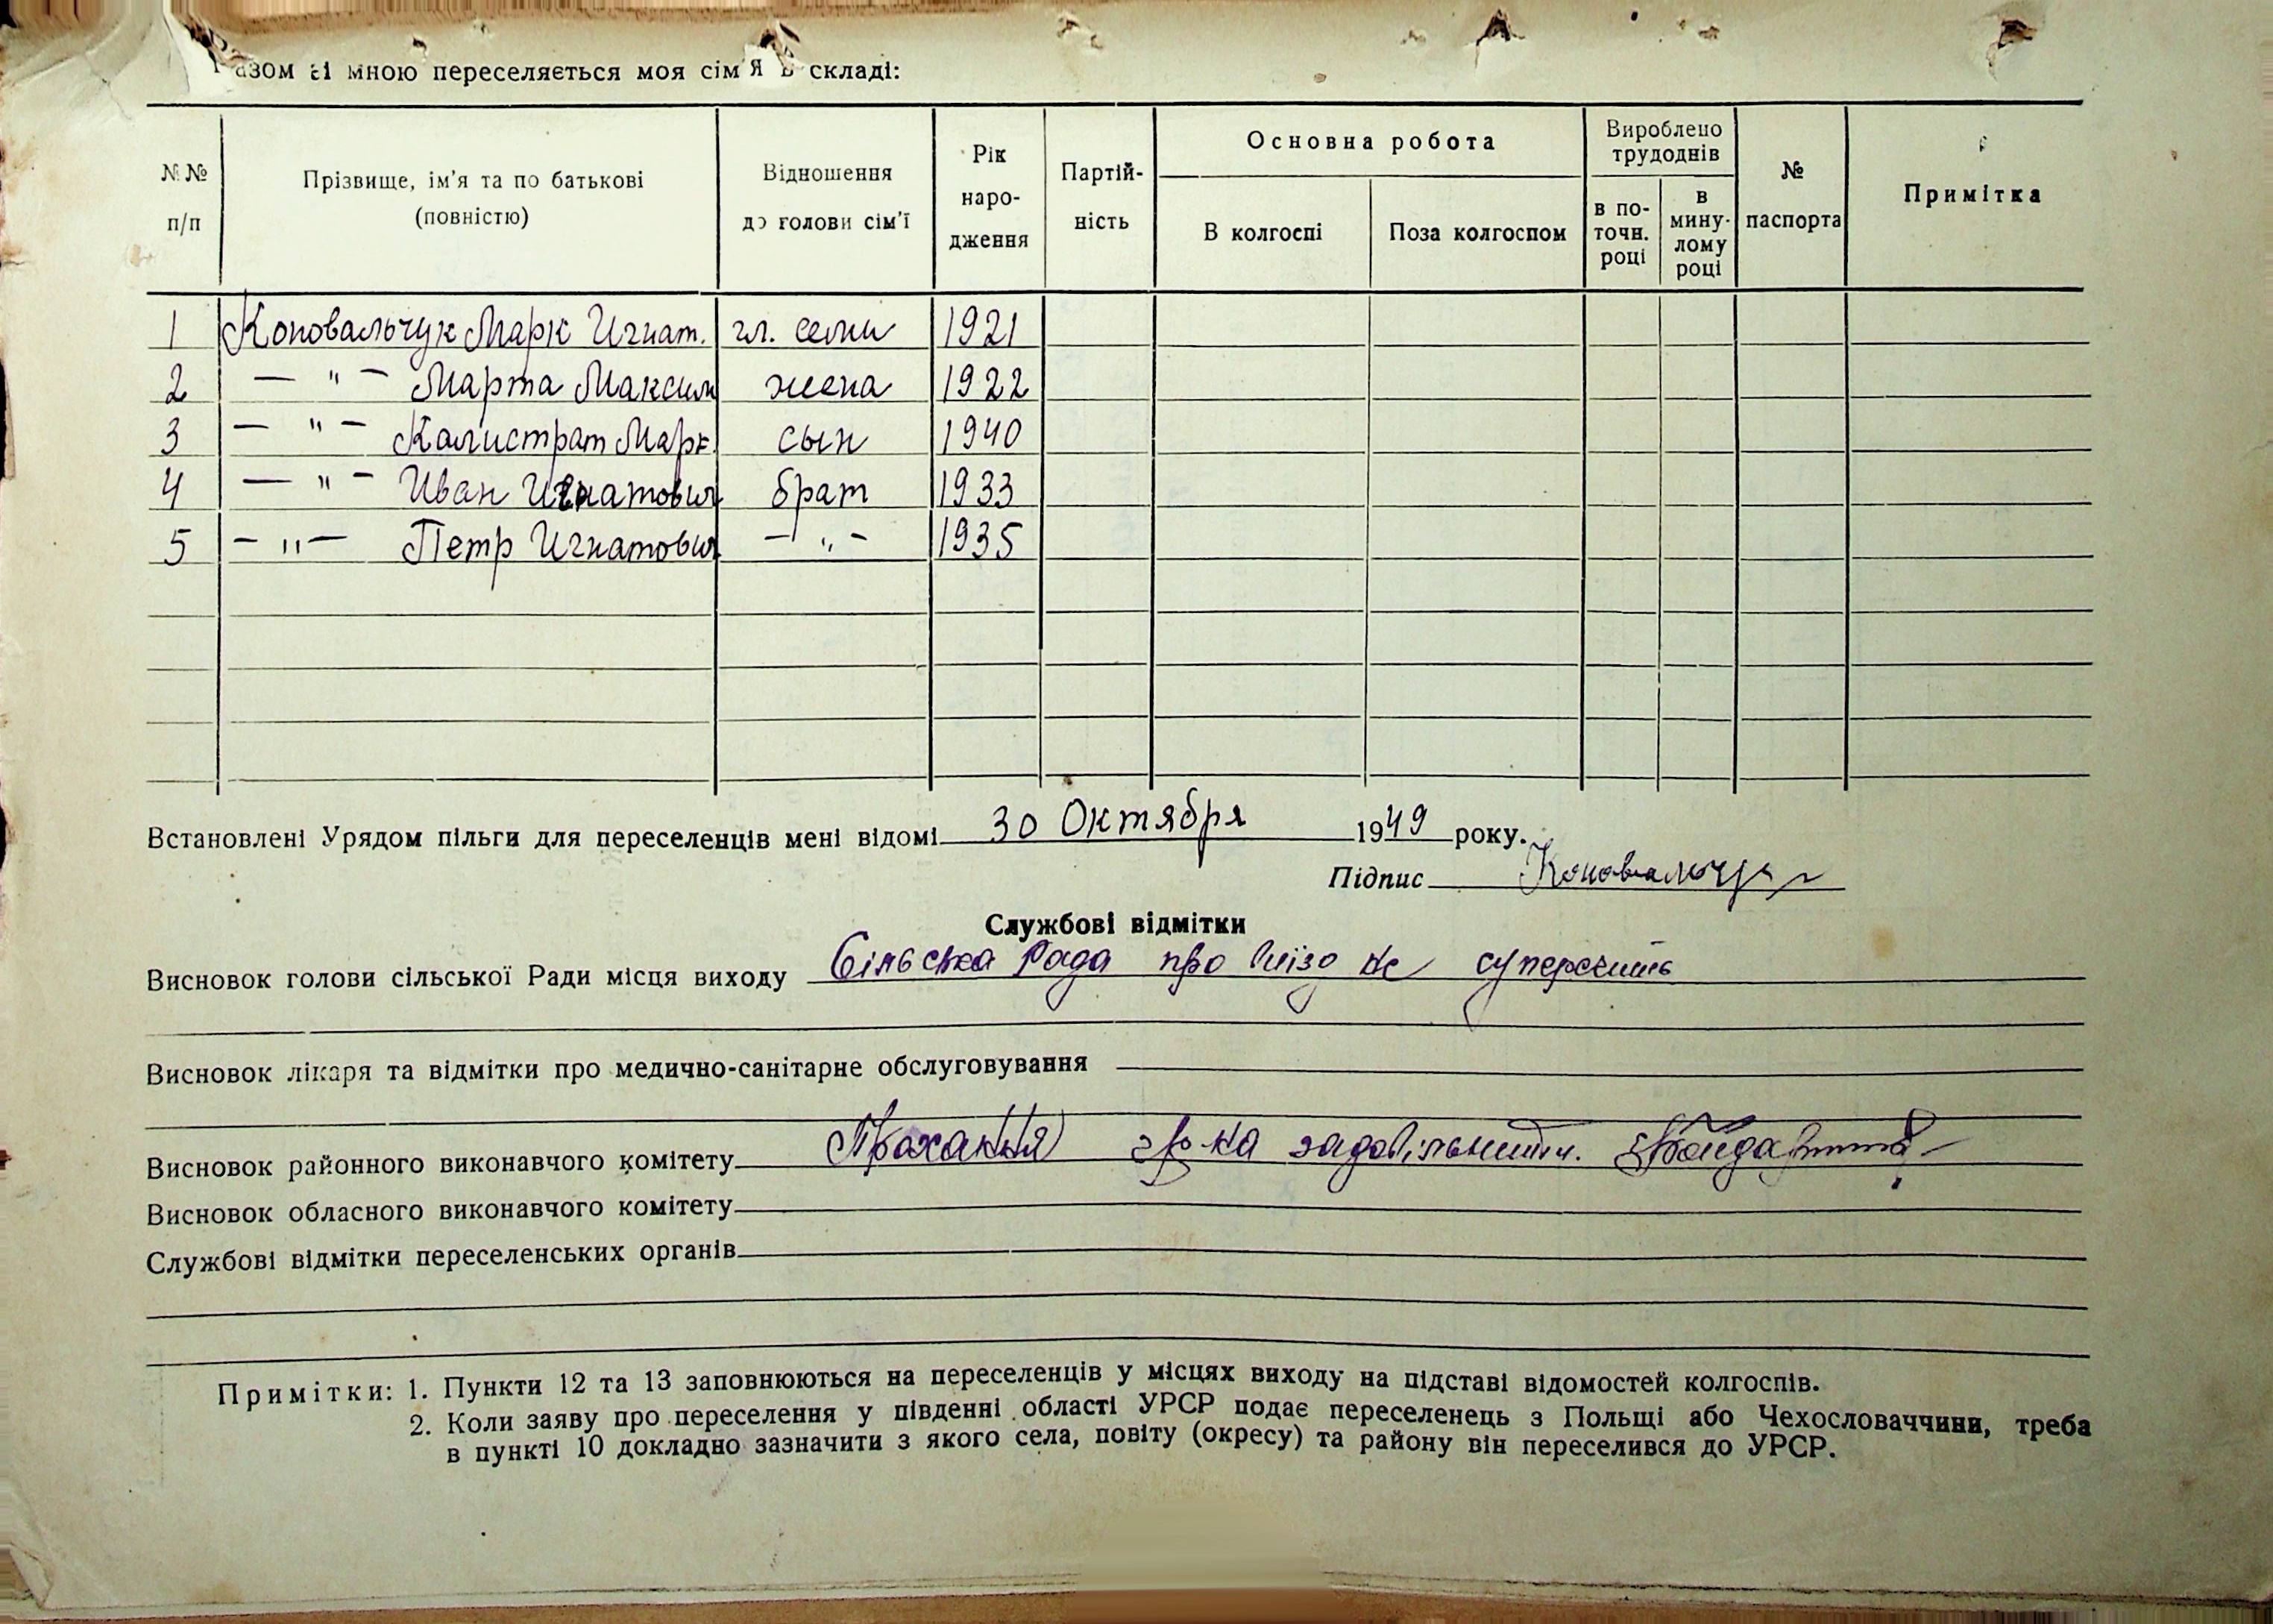 Разом зі мною переселяється моя сім'я в складі:
№№ п/п
Прізвище, ім'я та по батькові (повністю)
Відношення до голови сім'ї
Рік народження
Партійність
Основна робота
В колгоспі
Поза колгоспом
Вироблено трудоднів
в поточн. році
в минулому році
№ паспорта
Примітка
1 Коновальчук Марк Игнат. гл. семи 1921
2 — " — Марта Максим жена 1922
3 — " — Калистрат Марк. сын 1940
4 — " — Иван Игнатович брат 1933
5 — " — Петр Игнатович — " — 1935
Встановлені Урядом пільги для переселенців мені відомі 30 Октября 1949 року.
Підпис Коновальчук
Службові відмітки
Висновок голови сільської Ради місця виходу Сільська Рада про виїзд не суперечить
Висновок лікаря та відмітки про медично-санітарне обслуговування
Висновок районного виконавчого комітету Прохання гр-ка
Висновок обласного виконавчого комітету
Службові відмітки переселенських органів
Примітки: 1. Пункти 12 та 13 заповнюються на переселенців у місцях виходу на підставі відомостей колгоспів.
2. Коли заяву про переселення у південні області УРСР подає переселенець з Польщі або Чехословаччини, треба
в пункті 10 докладно зазначити з якого села, повіту (окресу) та району він переселився до УРСР.